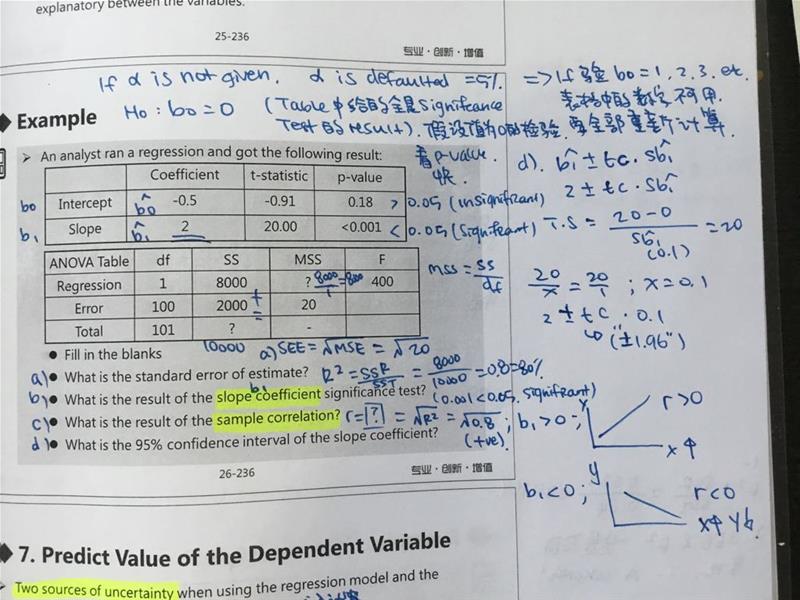 explanatory between the variables.
25-236
专业·创新·增值
If α is not given, α is defaulted =5%.
Ho: bo=0 (Table中给的全是Significance
Test的result). 假设值为0的检验.
=>If 验 bo=1, 2, 3, etc.
表格中的数字不可用
要全部重新计算.
Example
An analyst ran a regression and got the following result:
看p-value.
快.
Coefficient t-statistic p-value
bo Intercept b̂o -0.5 -0.91 0.18 > 0.05 (insignificant)
b₁ Slope b̂₁ 2 20.00 <0.001 < 0.05 (significant)
ANOVA Table df SS MSS F
Regression 1 8000 ? 8000/1=800 400
Error 100 2000 20
Total 101 ? -
10000
MSS = SS/df
Fill in the blanks
a) SEE = √MSE = √20
a) What is the standard error of estimate? R² = SSR/SST = 8000/10000 = 0.8 = 80%
b₁
b) What is the result of the slope coefficient significance test? (0.001 < 0.05, significant)
c) What is the result of the sample correlation? r=[?] = √R² = √0.8 ; b₁>0 ;
(+ve)
d) What is the 95% confidence interval of the slope coefficient?
26-236
专业·创新·增值
d). b̂₁ ± tc · sb̂₁
2 ± tc · sb̂₁
T.S = 20-0/sb̂₁ = 20
(0.1)
20/x = 20/1 ; x = 0.1
2 ± tc · 0.1
("±1.96")
y r>0
x↑
b₁<0 ; y r<0
x↑ y↓
7. Predict Value of the Dependent Variable
Two sources of uncertainty when using the regression model and the